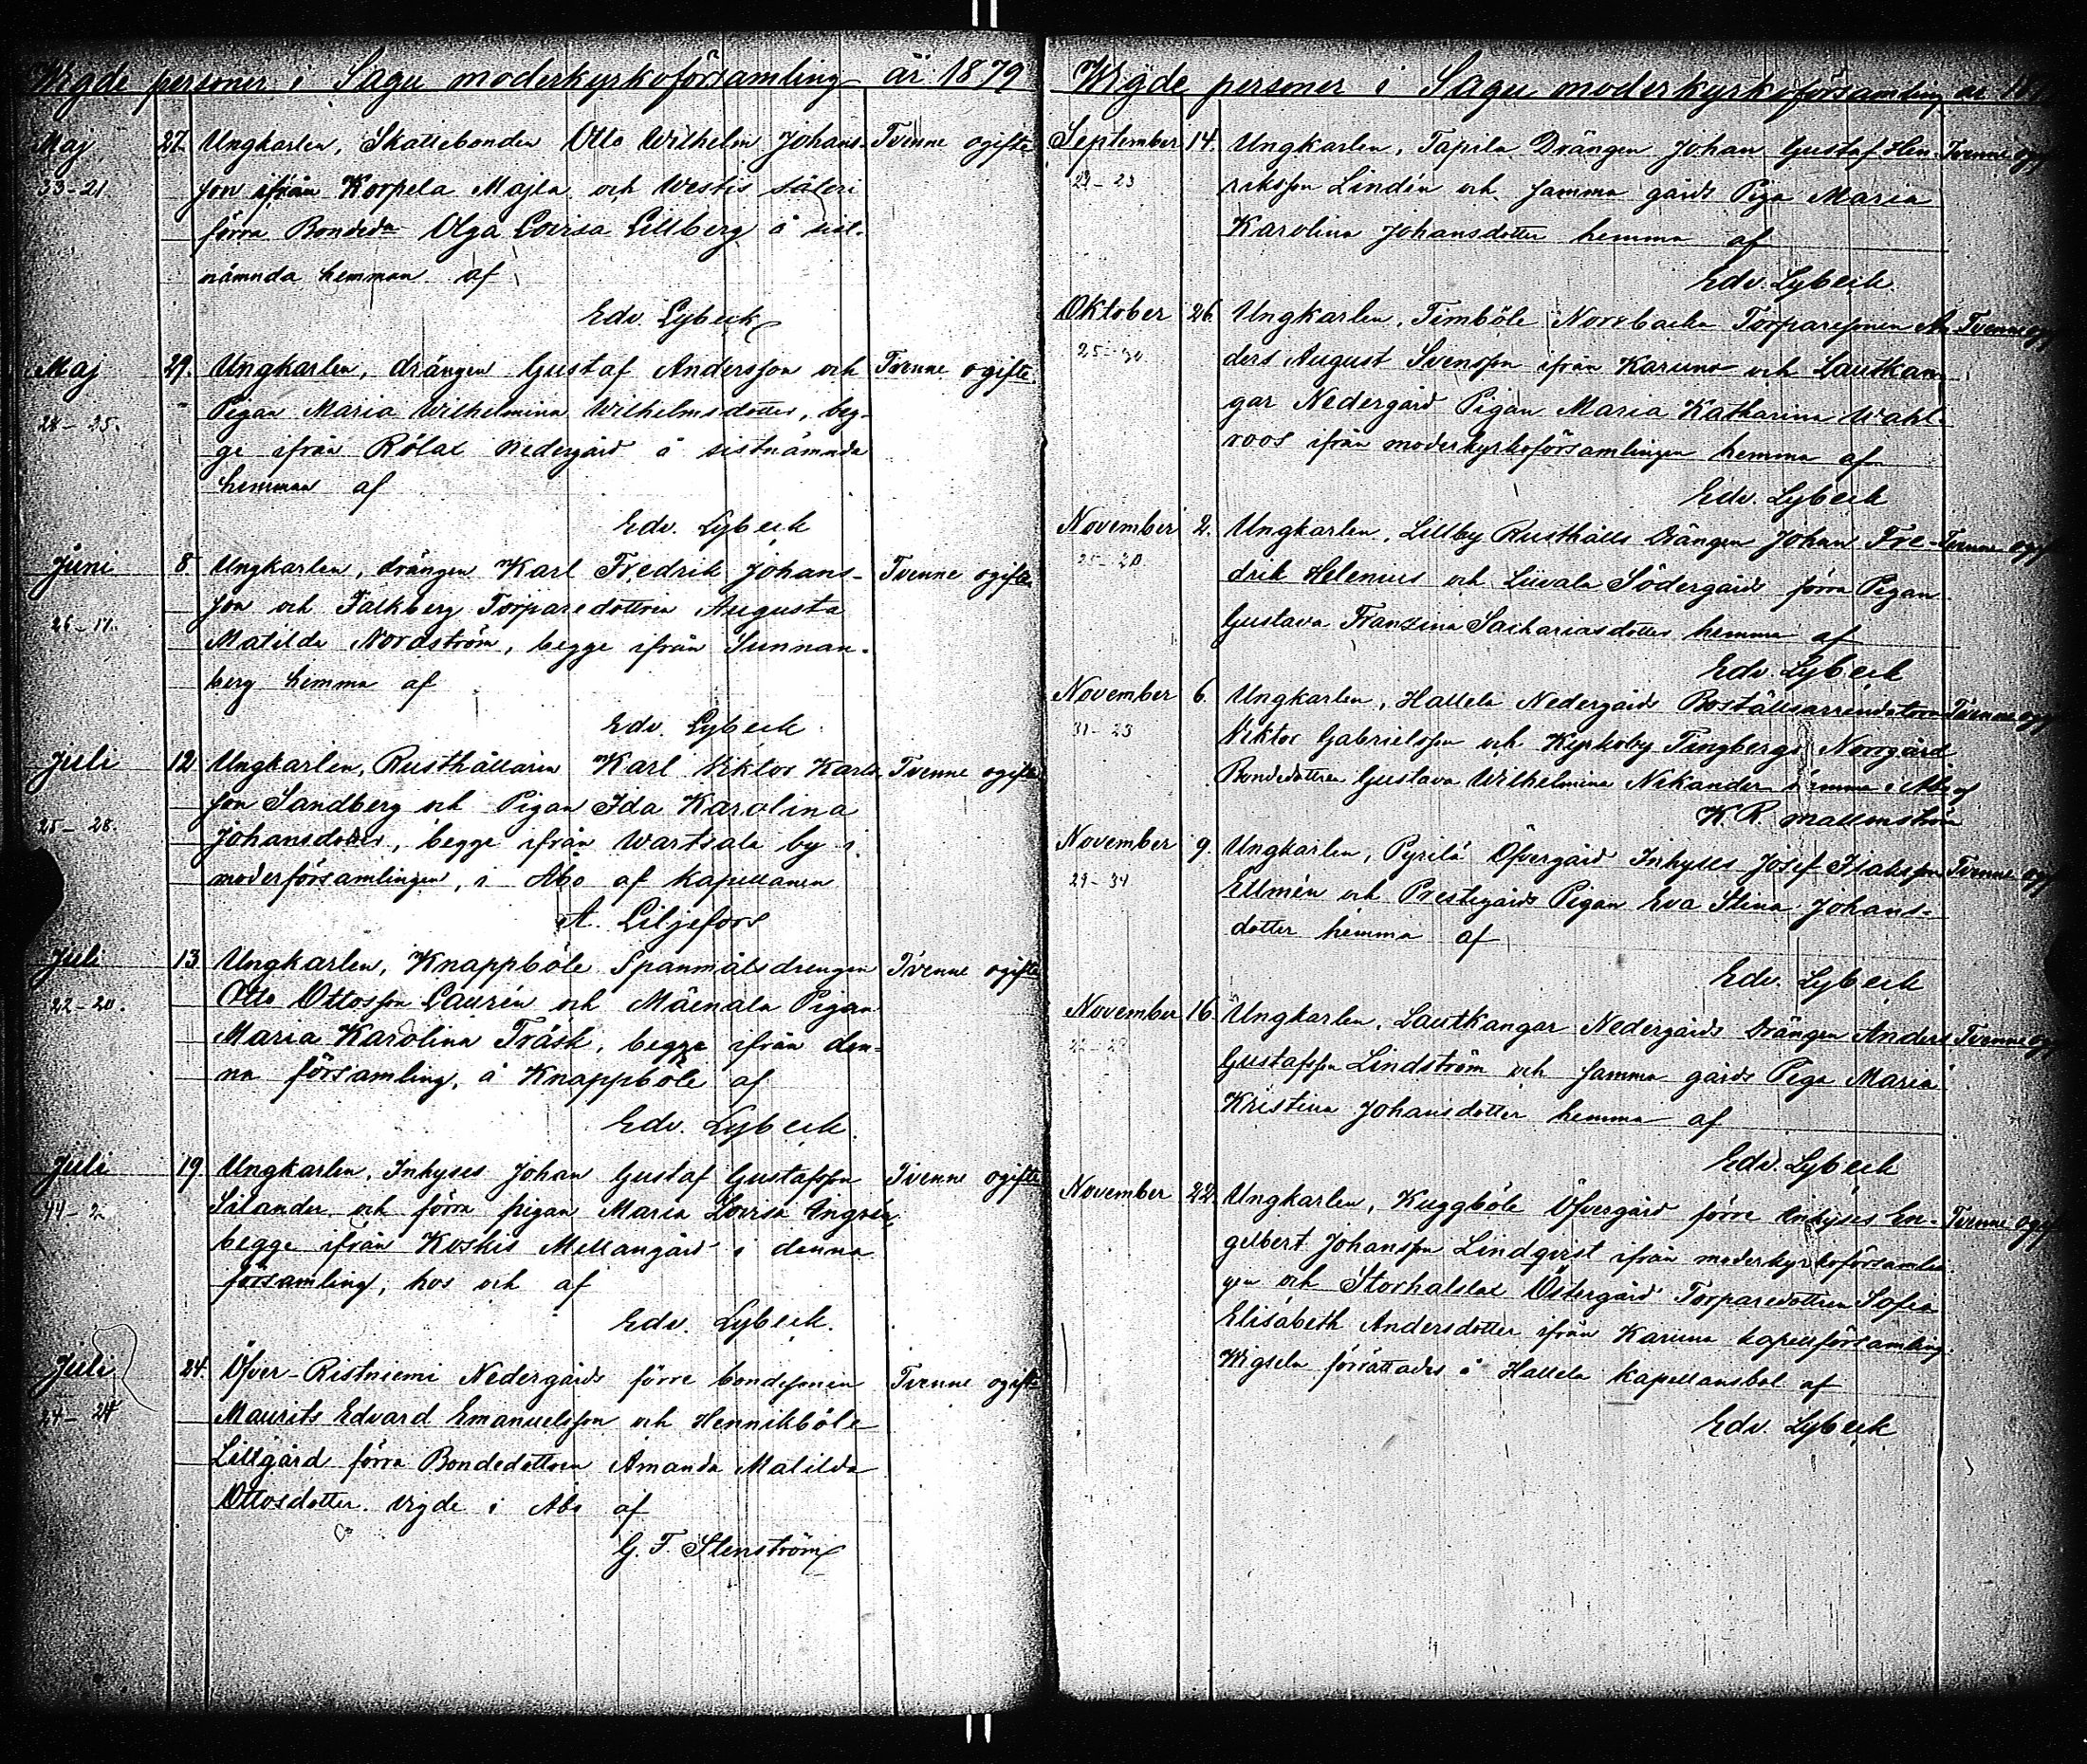 Wigde personer i Sagu moderkyrkoförsamling år 1879
Maj 27. Ungkarlen, Skattebonden Otto Wilhelm Johans- Tvenne ogifte
33-21. son ifrån Korpela Majla och Westis säteri
förra Bonded:n Olga Lovisa Lillberg å sist-
nämnda hemman af
Edv. Lybeck
Maj 29. Ungkarlen, drängen Gustaf Andersson och Tvenne ogifte
28-25. Pigan Maria Wilhelmina Wilhelmsdotter, beg-
ge ifrån Rölax Nedergård å sistnämnda
hemman af
Edv. Lybeck
Juni 8. Ungkarlen, drängen Karl Fredrik Johans- Tvenne ogifte
son och Falkberg Torparedottren Augusta
26-17. Matilda Nordström, begge ifrån Sunnan-
berg hemma af
Edv. Lybeck
Juli 12. Ungkarlen, Rusthållaren Karl Viktor Karls- Tvenne ogifte
son Sandberg och Pigan Ida Karolina
25-28. Johansdotter, begge ifrån Wartsala by i
moderförsamlingen, i Åbo af kapellanen
A. Liljefors
Juli 13. Ungkarlen, Knappböle Spanmålsdrengen Tvenne ogifte
22-20. Otto Ottosson Laurén och Mäenala Pigan
Maria Karolina Träsk, begge ifrån den-
na församling, å Knappböle af
Edv. Lybeck.
Juli 19. Ungkarlen, Inhyses Johan Gustaf Gustafsson Tvenne ogifte
44-2 Silander och förra pigan Maria Lovisa Engrén,
begge ifrån Koskis Mellangård i denna
församling, hos och af
Edv. Lybeck.
Juli 24. Öfver-Ristniemi Nedergårds förre bondesonen Tvenne ogifte
24-24 Maurits Edvard Emanuelsson och Hennikböle
Lillgård förra Bondedottren Amanda Matilda
Ottosdotter. vigde i Åbo af
G. F. Stenström
Wigde personer i Sagu moderkyrkoförsamling år
September 14. Ungkarlen, Tapila Drängen Johan Gustaf Hen- Tvenne
23 riksson Lindén och samma gårds Piga Maria
Karolina Johansdotter hemma af
Edv. Lybeck
Oktober 26. Ungkarlen, Timböle Norrbacka Torparesonen An- Tvenne
25-30 ders August Svensson ifrån Karuna och Lautkan-
gar Nedergård Pigan Maria Katharina Wahl-
roos ifrån moderkyrkoförsamlingen hemma af
Edv. Lybeck
November 2. Ungkarlen, Lillby Rusthålls Drängen Johan Fre- Tvenne
25-20 drik Helenius och Liivala Södergårds förra Pigan
Gustava Franzina Sachariasdotter hemma af
Edv. Lybeck
November 6. Ungkarlen, Hallela Nedergårds Boställsarrendatorn Tvenne
31-23 Viktor Gabrielsson och Kyrkoby Tingbergs Norrgård
Bondedottren Gustava Wilhelmina Nikander hemma i Åbo af
K. R. Malmström
November 9. Ungkarlen, Pyrilä Öfvergård Inhyses Josef Isaksson Tvenne
29-34 Ellmén och Prestegårds Pigan Eva Stina Johans-
dotter hemma af
Edv. Lybeck
November 16. Ungkarlen, Lautkangar Nedergårds Drängen Anders Tvenne
Gustafsson Lindström och samma gårds Piga Maria
Kristina Johansdotter hemma af
Edv. Lybeck
November 22. Ungkarlen, Kuggböle Öfvergård förre Inhyses En- Tvenne
gelbert Johansson Lindqvist ifrån moderkyrkoförsamlin-
gen och Storhalslax Östergård Torparedottren Sofia
Elisabeth Andersdotter ifrån Karuna kapellförsamling.
Wigseln förrättades å Hallela kapellansbol af
Edv. Lybeck